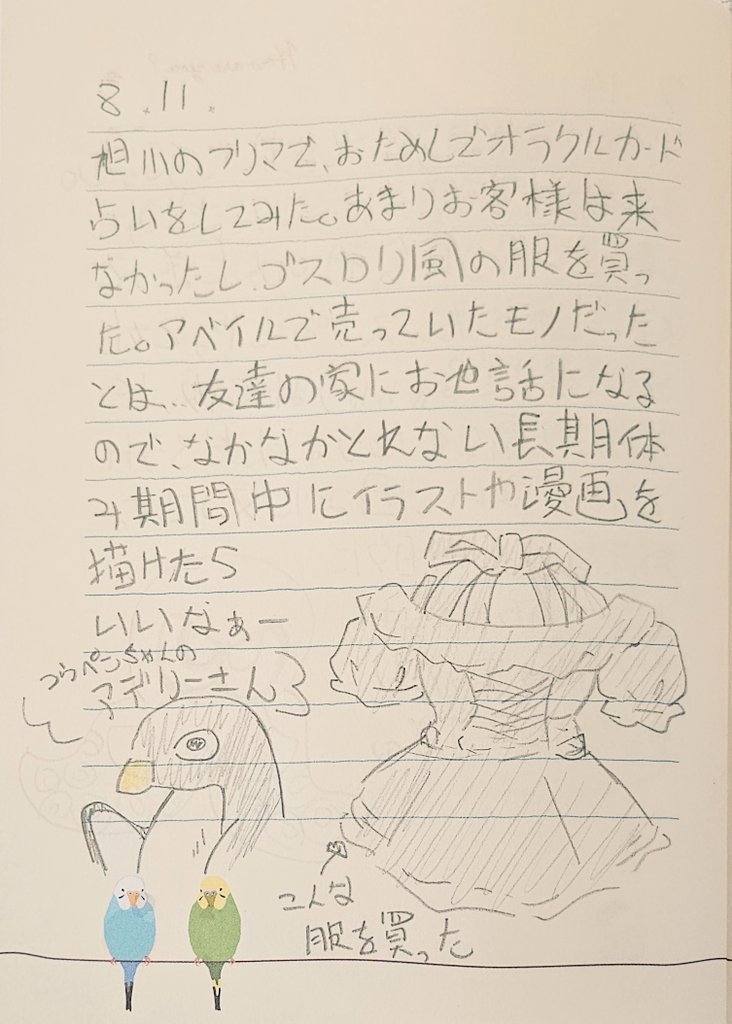 8.11.
旭川のフリマで、おためしでオラクルカード
占いをしてみた。あまりお客様は来
なかったし、ゴスロリ風の服を買っ
た。アベイルで売っていたモノだった
とは… 友達の家にお世話になる
ので、なかなかとれない長期休
み期間中にイラストや漫画を
描けたら
いいなぁー
コウペンちゃんの
アデリーさん
こんな
服を買った